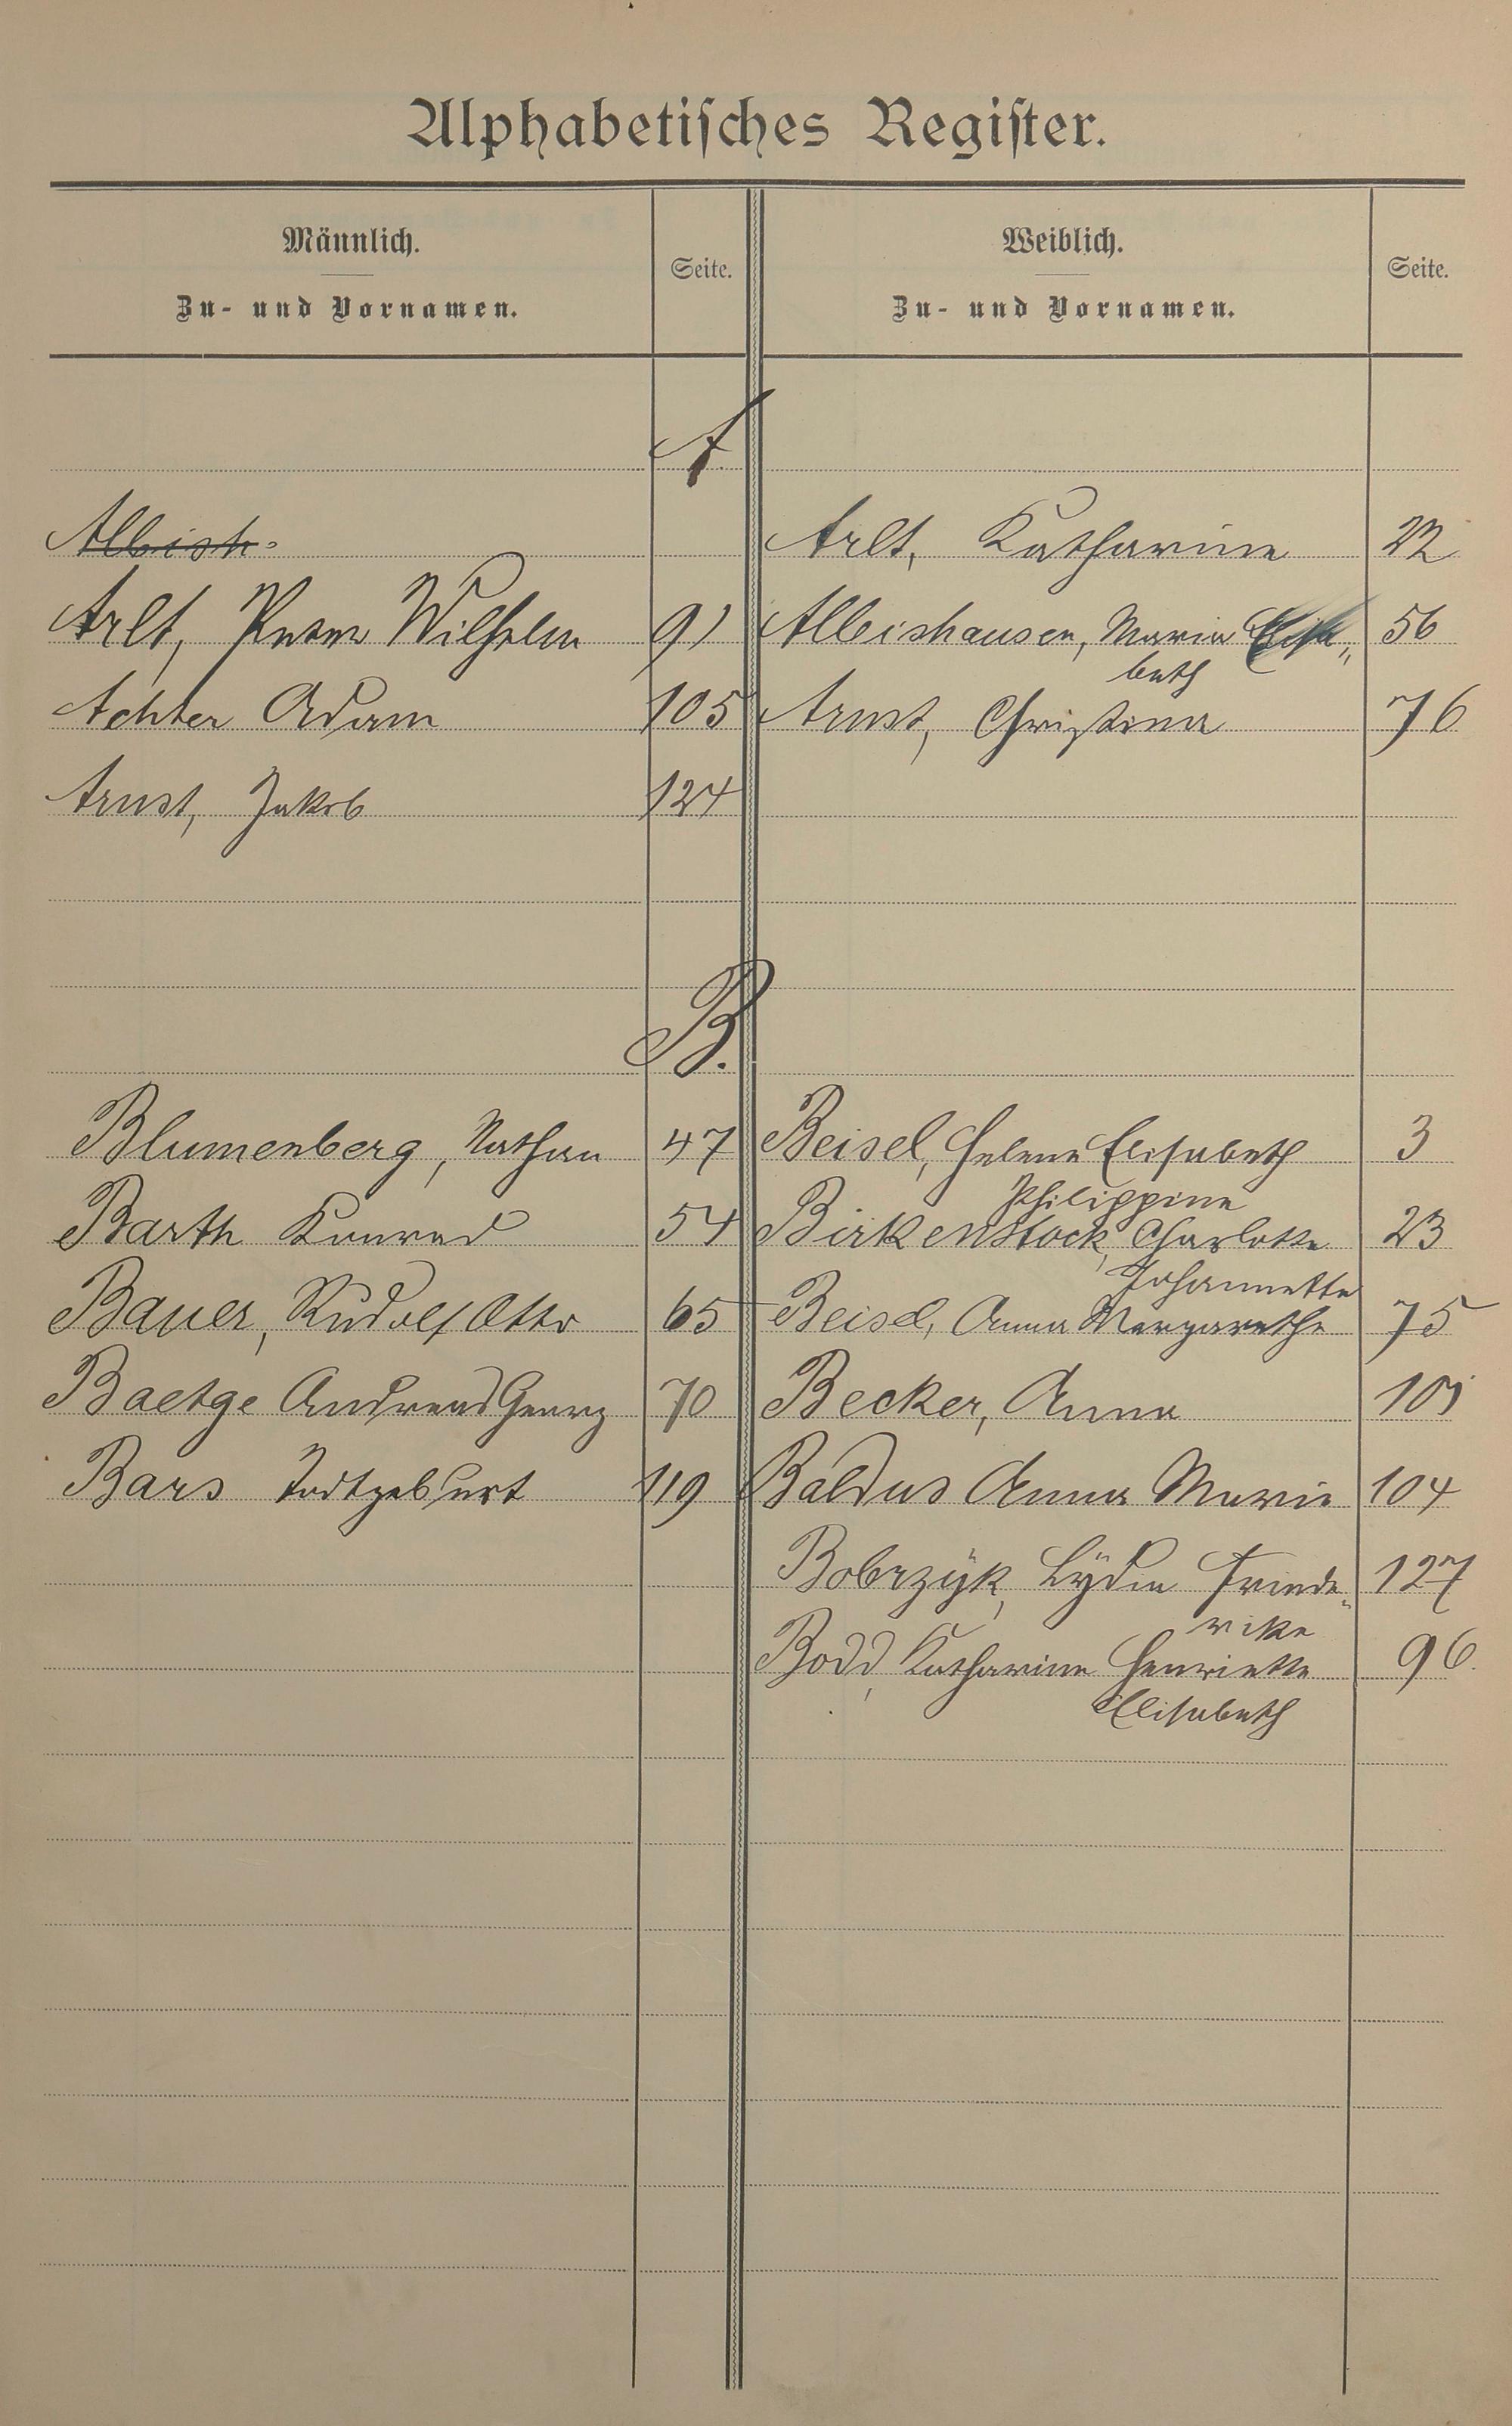 Alphabetisches Register.
Männlich. Weiblich.
Seite. Seite.
Zu- und Vornamen. Zu- und Vornamen.
A
Albish- Arlt, Katharine 22
Arlt, Peter Wilhelm 91 Albishausen, Maria Elisa„ 56
beth
Achter Adam 105 Arnst, Christina 76
Arnst, Jakob 124
B.
Blumenberg, Nathan 47 Beisel, Helene Elisabeth 3
Philippine
Barth Konrad 54 Birkenstock, Charlotte 23
Johannette
Bauer, Rudolf Otto 65 Beisel, Anna Margarethe 75
Baetge Andreas Georg 70 Becker, Anna 101
Bars Todtgeburt 119 Baldus Anna Marie 104
Bobrzyk, Lydia Friede„ 127
rike
Bodd, Katharine Henriette 96
Elisabeth